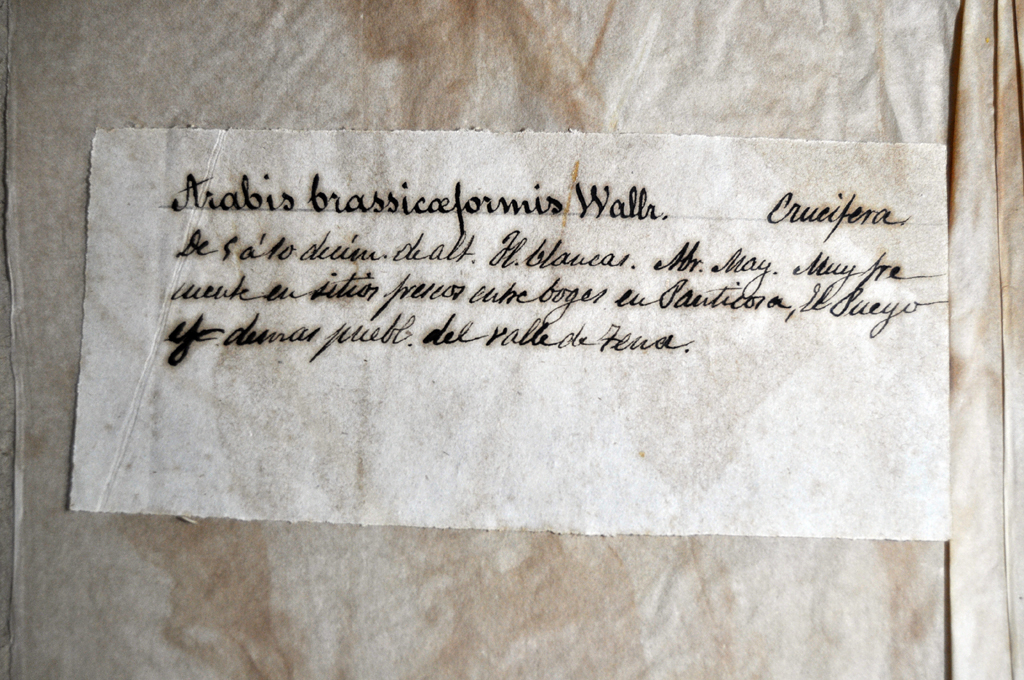 Arabis brassicæformis Wallr. Crucifera
De 5 á 10 decím. de alt. Fl. blancas. Abr. May. Muy fre
cuente en sitios frescos entre boges en Panticosa, El Pueyo
y demas puebl. del valle de Tena.